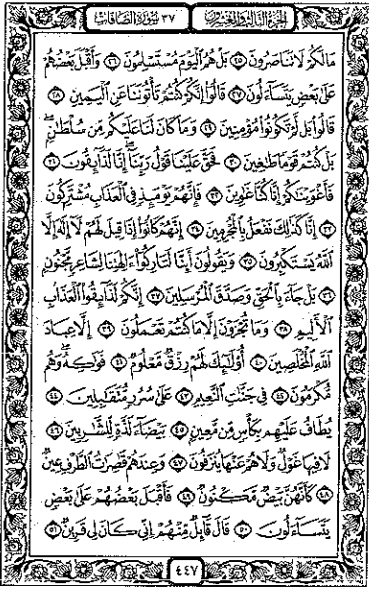 الجزء الثالث والعشرون
٣٧ سورة الصافات
مَا لَكُمْ لَا تَنَاصَرُونَ ٢٥ بَلْ هُمُ الْيَوْمَ مُسْتَسْلِمُونَ ٢٦ وَأَقْبَلَ بَعْضُهُمْ
عَلَىٰ بَعْضٍ يَتَسَاءَلُونَ ٢٧ قَالُوا إِنَّكُمْ كُنتُمْ تَأْتُونَنَا عَنِ الْيَمِينِ ٢٨
قَالُوا بَل لَّمْ تَكُونُوا مُؤْمِنِينَ ٢٩ وَمَا كَانَ لَنَا عَلَيْكُم مِّن سُلْطَانٍ
بَلْ كُنتُمْ قَوْمًا طَاغِينَ ٣٠ فَحَقَّ عَلَيْنَا قَوْلُ رَبِّنَا إِنَّا لَذَائِقُونَ ٣١
فَأَغْوَيْنَاكُمْ إِنَّا كُنَّا غَاوِينَ ٣٢ فَإِنَّهُمْ يَوْمَئِذٍ فِي الْعَذَابِ مُشْتَرِكُونَ
٣٣ إِنَّا كَذَٰلِكَ نَفْعَلُ بِالْمُجْرِمِينَ ٣٤ إِنَّهُمْ كَانُوا إِذَا قِيلَ لَهُمْ لَا إِلَٰهَ إِلَّا
اللَّهُ يَسْتَكْبِرُونَ ٣٥ وَيَقُولُونَ أَئِنَّا لَتَارِكُو آلِهَتِنَا لِشَاعِرٍ مَّجْنُونٍ
٣٦ بَلْ جَاءَ بِالْحَقِّ وَصَدَّقَ الْمُرْسَلِينَ ٣٧ إِنَّكُمْ لَذَائِقُو الْعَذَابِ
الْأَلِيمِ ٣٨ وَمَا تُجْزَوْنَ إِلَّا مَا كُنتُمْ تَعْمَلُونَ ٣٩ إِلَّا عِبَادَ
اللَّهِ الْمُخْلَصِينَ ٤٠ أُولَٰئِكَ لَهُمْ رِزْقٌ مَّعْلُومٌ ٤١ فَوَاكِهُ وَهُم
مُّكْرَمُونَ ٤٢ فِي جَنَّاتِ النَّعِيمِ ٤٣ عَلَىٰ سُرُرٍ مُّتَقَابِلِينَ ٤٤
يُطَافُ عَلَيْهِم بِكَأْسٍ مِّن مَّعِينٍ ٤٥ بَيْضَاءَ لَذَّةٍ لِّلشَّارِبِينَ ٤٦
لَا فِيهَا غَوْلٌ وَلَا هُمْ عَنْهَا يُنزَفُونَ ٤٧ وَعِندَهُمْ قَاصِرَاتُ الطَّرْفِ عِينٌ
٤٨ كَأَنَّهُنَّ بَيْضٌ مَّكْنُونٌ ٤٩ فَأَقْبَلَ بَعْضُهُمْ عَلَىٰ بَعْضٍ
يَتَسَاءَلُونَ ٥٠ قَالَ قَائِلٌ مِّنْهُمْ إِنِّي كَانَ لِي قَرِينٌ ٥١
٤٤٧